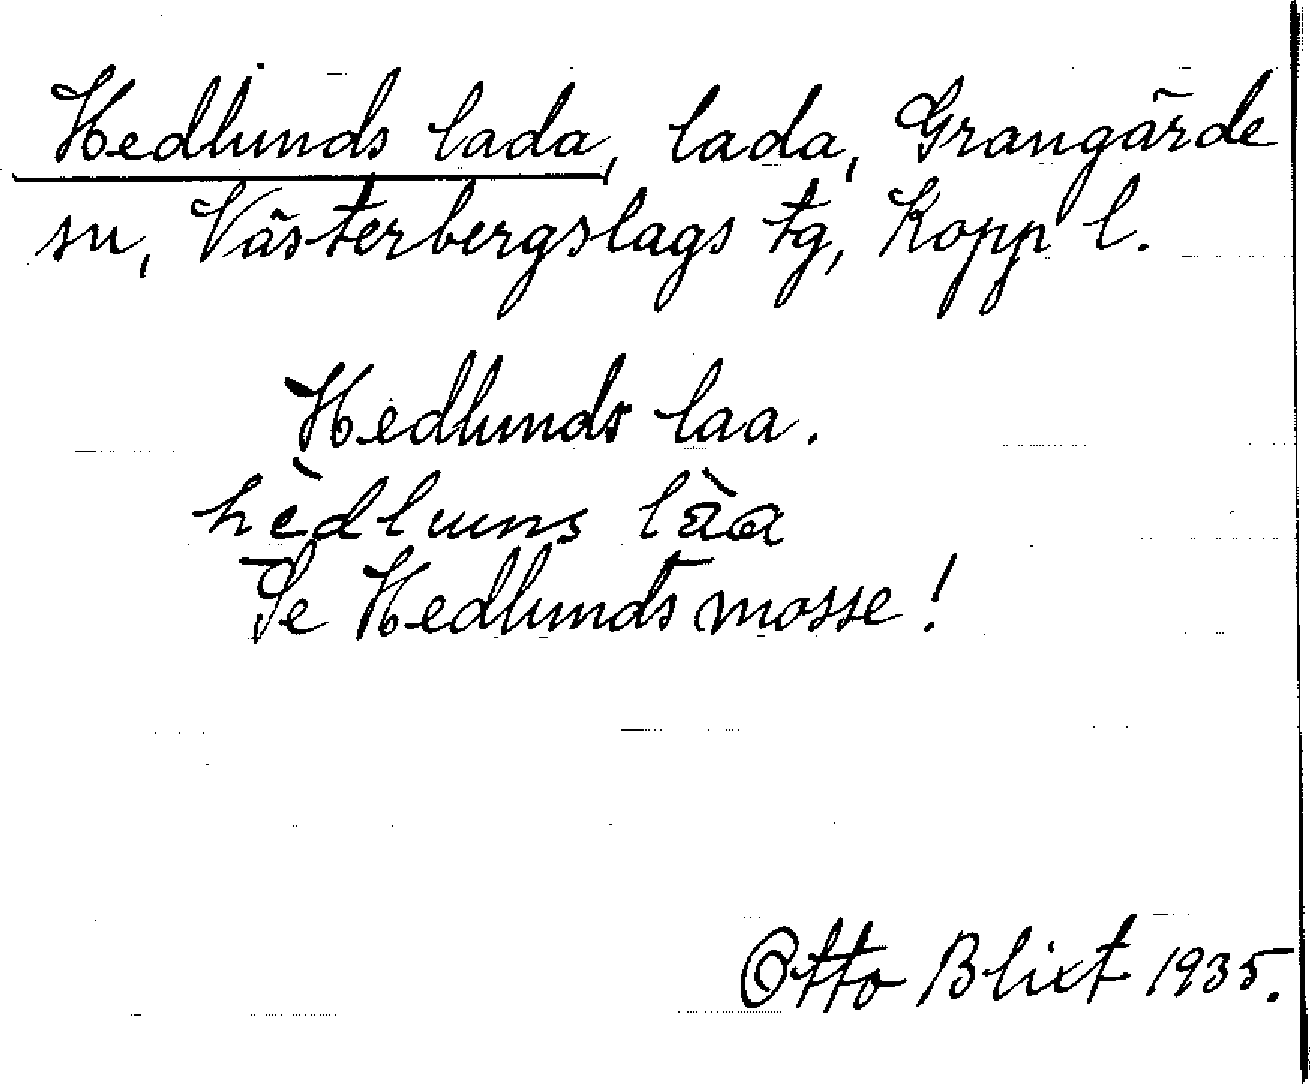 Hedlunds lada, lada, Grangärde
sn, Västerbergslags tg, Kopp l.
Hedlunds laa.
hèdluns làa
Se Hedlunds mosse!
Otto Blixt 1935.